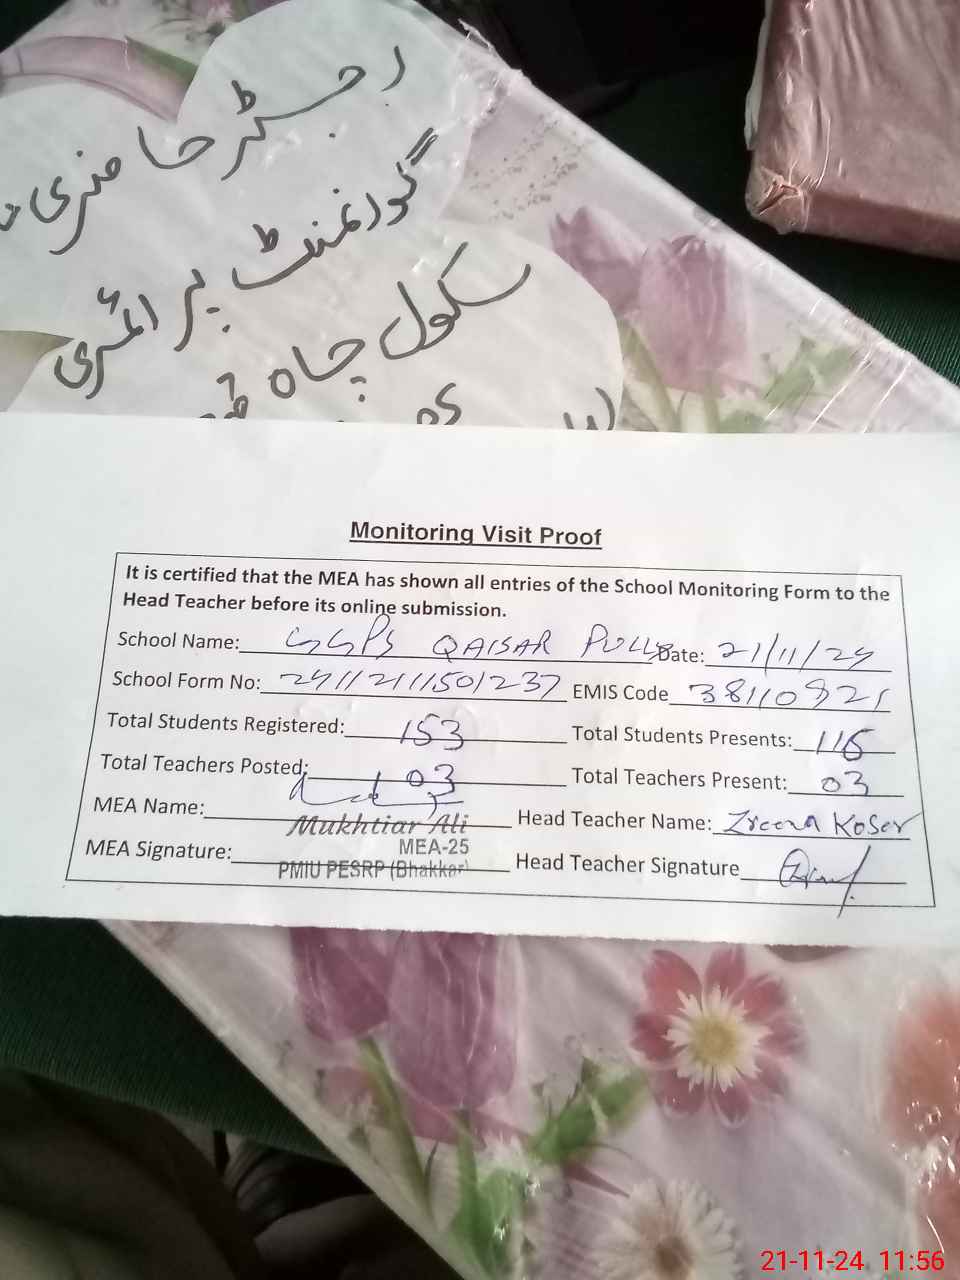 رجسٹر حاضری
گورنمنٹ پرائمری
سکول چاہ
Monitoring Visit Proof
It is certified that the MEA has shown all entries of the School Monitoring Form to the
Head Teacher before its online submission.
School Name: GGPS QAISAR PULLY Date: 21/11/24
School Form No: 241121111501237 EMIS Code 38110821
Total Students Registered: 153 Total Students Presents: 116
Total Teachers Posted: 03 Total Teachers Present: 03
MEA Name: Mukhtiar Ali Head Teacher Name: Zreena Koser
MEA-25
MEA Signature: PMIU PESRP (Bhakkar) Head Teacher Signature
21-11-24 11:56